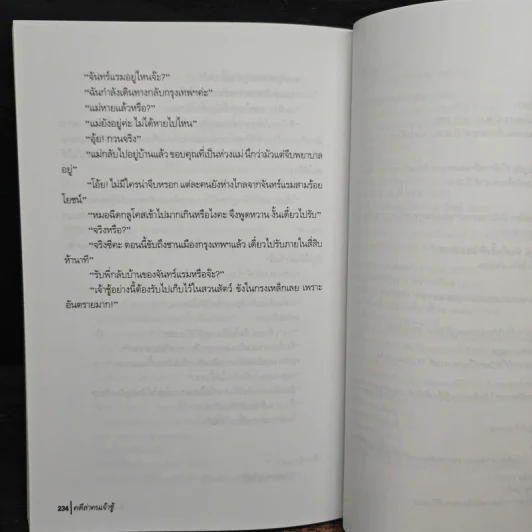 “จันทร์แรมอยู่ไหนจ๊ะ?”
“ฉันกำลังเดินทางกลับกรุงเทพฯค่ะ”
“แม่หายแล้วหรือ?”
“แม่ยังอยู่ค่ะ ไม่ได้หายไปไหน”
“อุ้ย! กวนจริง”
“แม่กลับไปอยู่บ้านแล้ว ขอบคุณที่เป็นห่วงแม่ นึกว่ามัวแต่จีบพยาบาล
อยู่”
“โอ๊ย! ไม่มีใครน่าจีบหรอก แต่ละคนยังห่างไกลจากจันทร์แรมสามร้อย
โยชน์”
“หมอฉีดกลูโคสเข้าไปมากเกินหรือไงคะ จึงพูดหวาน งั้นเดี๋ยวไปรับ”
“จริงหรือ?”
“จริงซีคะ ตอนนี้ขับถึงชานเมืองกรุงเทพฯแล้ว เดี๋ยวไปรับภายในสี่สิบ
ห้านาที”
“รับพี่กลับบ้านของจันทร์แรมหรือจ๊ะ?”
“เจ้าชู้อย่างนี้ต้องรับไปเก็บไว้ในสวนสัตว์ ขังในกรงเหล็กเลย เพราะ
อันตรายมาก!”
234 | คดีล่าคนเจ้าชู้